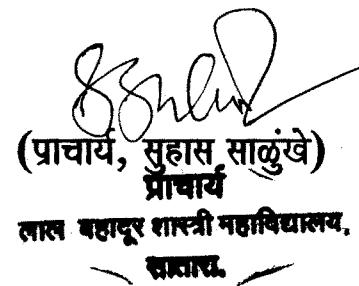 (प्राचार्य, सुहास साळुंखे)
प्राचार्य
लाल बहादूर शास्त्री महाविद्यालय,
सातारा.